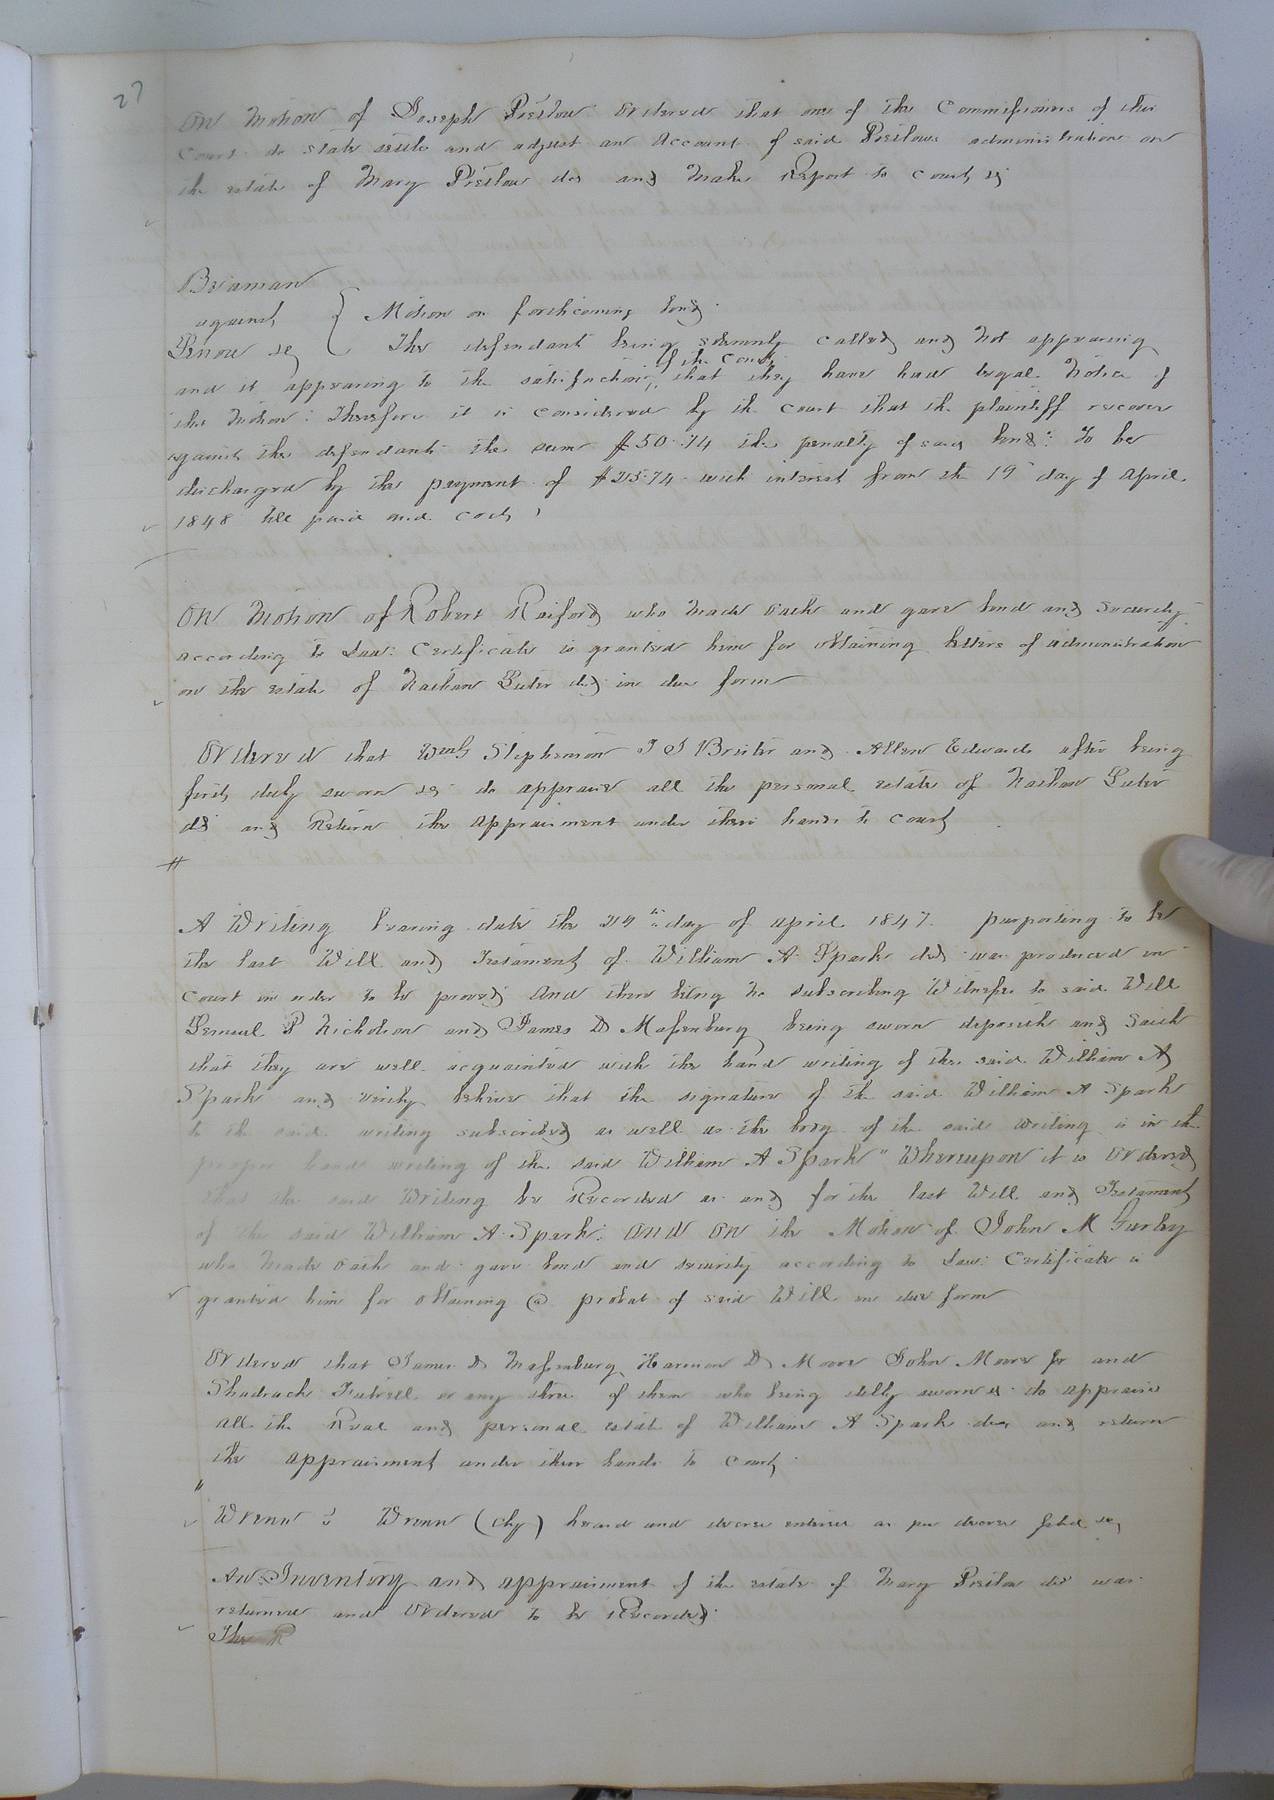 27
On Motion of Joseph Preslow Ordered that one of the Commissioners of this
Court do state settle and adjust an Account of said Preslows administration on
the estate of Mary Preslow decd and Make Report to Court &c
Beaman
against
Motion on forthcoming bond.
&c The defendants being solemnly called and Not appearing
of the Court
and it appearing to the satisfaction, that they have had legal Notice of
this Motion: Therefore it is Considered by the Court that the plaintiff recover
against the defendants the sum $50.74 the penalty of said bond: To be
discharged by the payment of $25.74 with interest from the 19th day of April
1848 till paid and Costs
On Motion of Robert Raiford who Made oath and gave bond and Security
According to Law: Certificate is granted him for obtaining letters of administration
on the estate of Nathan Luter decd in due form
Ordered that Wm G Stephenson J J Brister and Allen Edwards after being
first duly sworn &c do appraise all the personal estate of Nathan Luter
decd and Return the Appraisment under their hands to Court
A Writing bearing date the 24th day of April 1847. purporting to be
the last Will and Testament of William A Spark decd was produced in
Court in order to be proved And there being No subscribing Witnesses to said Will
Lemuel P Nicholson and James D Massenburg being sworn deposeth and Saith
that they are well acquainted with the hand writing of the said William A
Spark and verily believe that the signature of the said William A Spark
to the said writing subscribed as well as the body of the said writing is in the
proper hand writing of the said William A Spark" Whereupon it is Ordered
that the said Writing be Recorded as and for the last Will and Testament
of the said William A Spark. And On the Motion of John M Gurley
who Made oath and gave bond and security according to Law: Certificate is
granted him for obtaining a probat of said Will in due form
Ordered that James D Massenburg Harrison D Moore John Moore Jr and
Shadrach Futrell or any three of them who being duly sworn &c do appraise
all the Real and personal estate of William A Spark decd and return
the appraisment under their hands to Court
Wrenn vs Wrenn (Chy) heard and decree entered as per decree filed &c
An Inventory and appraisment of the estate of Mary Preslow decd was
returned and Ordered to be Recorded.
The R